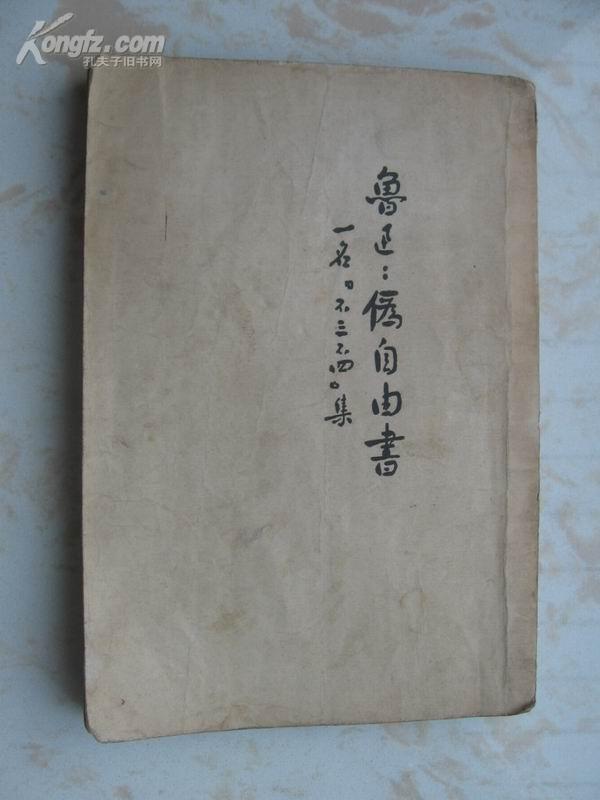 Kongfz.com
孔夫子旧书网
魯迅：偽自由書
一名「不三不四」集